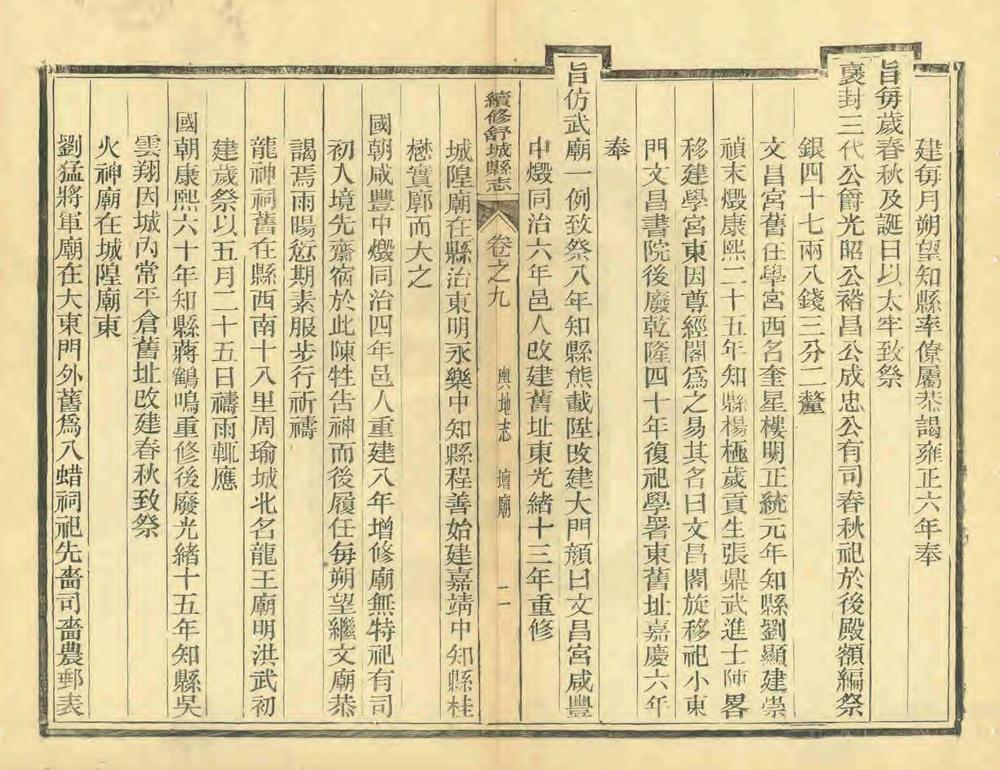 建每月朔望知縣率僚屬恭謁雍正六年奉
旨每歲春秋及誕日以太牢致祭
襃封三代公爵光昭公裕昌公成忠公有司春秋祀於後殿額編祭
銀四十七兩八錢三分二釐
文昌宮舊在學宮西名奎星樓明正統元年知縣劉顯建崇
禎末燬康熙二十五年知縣楊極歲貢生張鼎武進士陳畧
移建學宮東因尊經閣爲之易其名曰文昌閣旋移祀小東
門文昌書院後廢乾隆四十年復祀學署東舊址嘉慶六年
奉
旨仿武廟一例致祭八年知縣熊載陞改建大門顏曰文昌宮咸豐
中燬同治六年邑人改建舊址東光緒十三年重修
續修舒城縣志 卷之九 輿地志 壇廟 二一
城隍廟在縣治東明永樂中知縣程善始建嘉靖中知縣桂
懋實廓而大之
國朝咸豐中燬同治四年邑人重建八年增修廟無特祀有司
初入境先齋宿於此陳牲告神而後履任每朔望繼文廟恭
謁焉雨暘愆期素服步行祈禱
龍神祠舊在縣西南十八里周瑜城北名龍王廟明洪武初
建歲祭以五月二十五日禱雨輒應
國朝康熙六十年知縣蔣鶴鳴重修後廢光緒十五年知縣吳
雲翔因城內常平倉舊址改建春秋致祭
火神廟在城隍廟東
劉猛將軍廟在大東門外舊爲八蜡祠祀先嗇司嗇農郵表